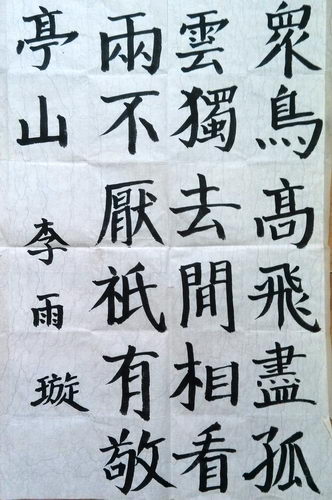 眾鳥髙飛盡孤
雲獨去閒相看
兩不厭祇有敬
亭山
李雨璇